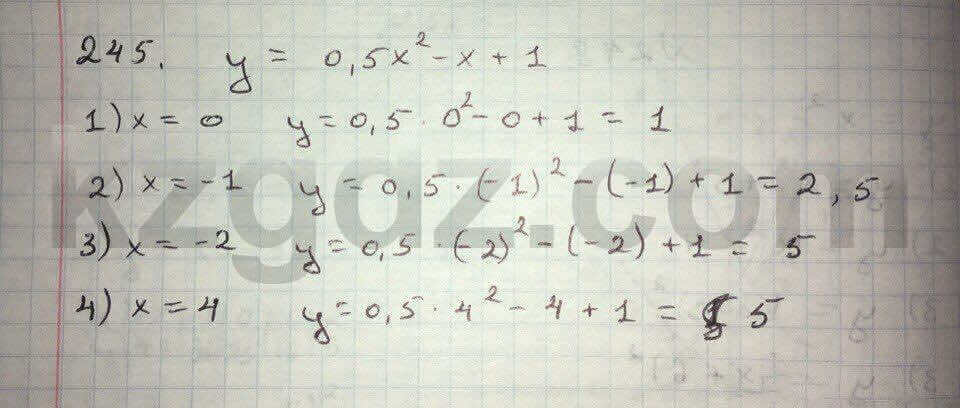 245. y = 0,5x² - x + 1
1) x = 0 y = 0,5 · 0² - 0 + 1 = 1
2) x = -1 y = 0,5 · (-1)² - (-1) + 1 = 2,5
3) x = -2 y = 0,5 · (-2)² - (-2) + 1 = 5
4) x = 4 y = 0,5 · 4² - 4 + 1 = 5
kzgdz.com